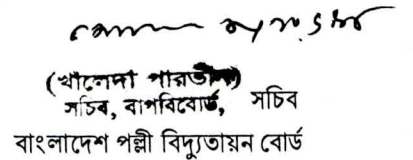 (খালেদা পারভীন)
সচিব, বাপবিবোর্ড, সচিব
বাংলাদেশ পল্লী বিদ্যুতায়ন বোর্ড